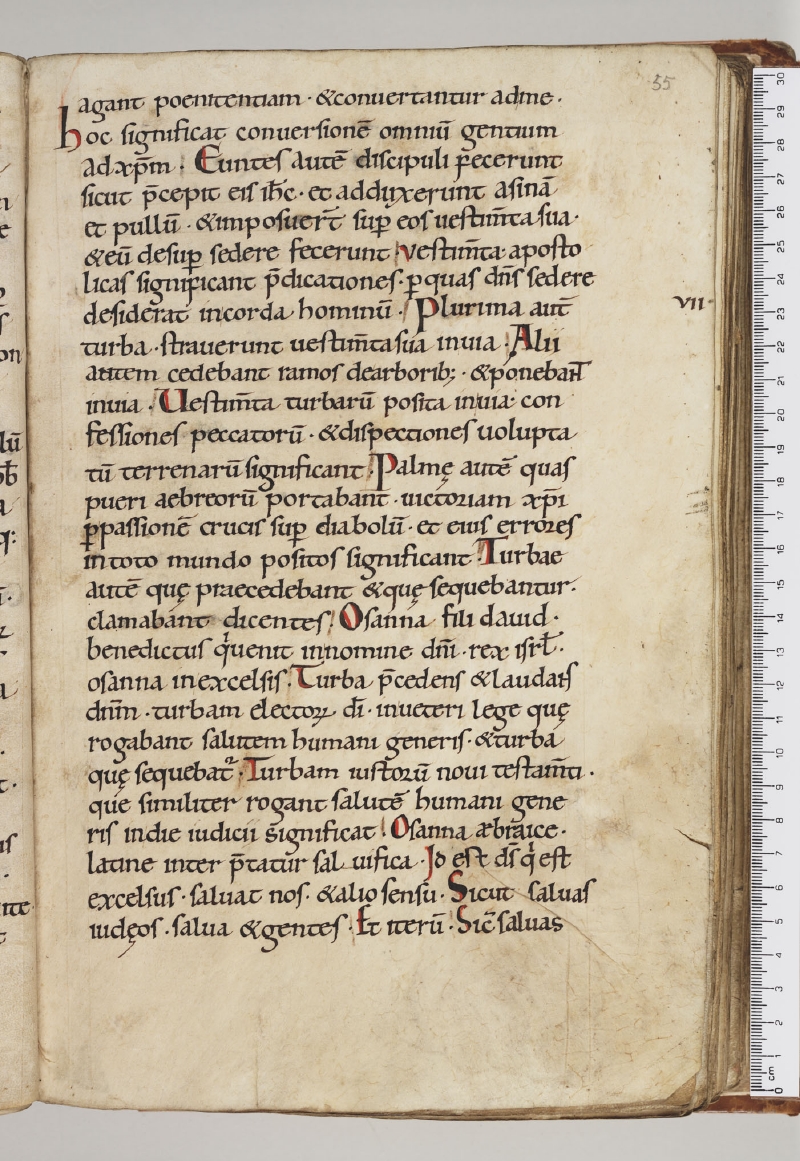 55
agant poenitentiam · &conuertantur adme ·
hoc significat conuersionē omniū gentium
adxp̄m · Euntes autē discipuli p̄ecerunt
sicut p̄cepit eis ih̄c · et adduxerunt asinā
et pullū · &imposuer̄t sup̲ eos uestim̄ta sua ·
&eū desup̲ sedere fecerunt · vestim̄ta aposto
licas significant p̄dicationes · ꝑquas dn̄s sedere
desiderat incorda hominū · Plurima aut̄
VII ·
turba · strauerunt uestim̄ta sua inuia · Alii
autem cedebant ramos dearborib; · &ponebant
inuia · Uestim̄ta turbarū posita inuia con
fessiones peccatorū · &dispectiones uolupta
tū terrenarū significant · Palmę autē quas
pueri aebreorū portabant · uictoriam xp̄i
ꝑpassionē crucis sup̲ diabolū · et eius errores
intoto mundo positos significant · Turbae
autē quę praecedebant &quę sequebantur ·
clamabant dicentes · Osanna fili dauid ·
benedictus qͥuenit innomine dn̄i · rex isrł ·
osanna inexcelsis · Turba p̄cedens &laudans
dn̄m · turbam electoꝝ dī · inueteri lege quę
rogabant salutem humani generis · &turba
quę sequebat᷑ · Turbam iustorū noui testam̄ti ·
que similiter rogant salutē humani gene
ris indie iudicii significat · Osanna æbraice ·
latine inter p̄tatur saluifica · Id est ds̄ qͥ est
excelsus · saluat nos · &alio sensu · Sicut saluas
iudęos · salua &gentes · Et iterū · Sic̄ saluas